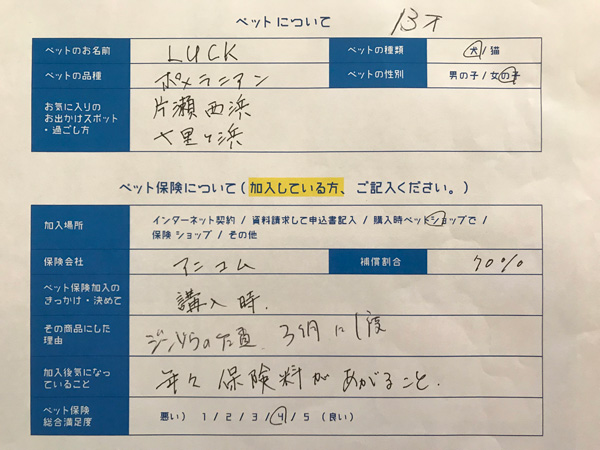 ペットについて 13才
ペットのお名前 LUCK ペットの種類 犬/猫
ペットの品種 ポメラニアン ペットの性別 男の子/女の子
お気に入りの
お出かけスポット
・過ごし方
片瀬西浜
七里ヶ浜
ペット保険について(加入している方、ご記入ください。)
加入場所
インターネット契約 / 資料請求して申込書記入 / 購入時ペットショップで /
保険ショップ / その他
保険会社 アニコム 補償割合 70%
ペット保険加入の
きっかけ・決めて
講入時.
その商品にした
理由
3ヶ月に1度
加入後気になっ
ていること
年々保険料があがること.
ペット保険
総合満足度
悪い) 1 / 2 / 3 / 4 / 5 (良い)